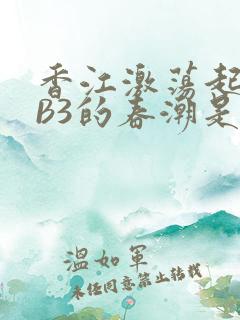 香江激荡起
B3的春潮是
温如军
未经同意禁止转载